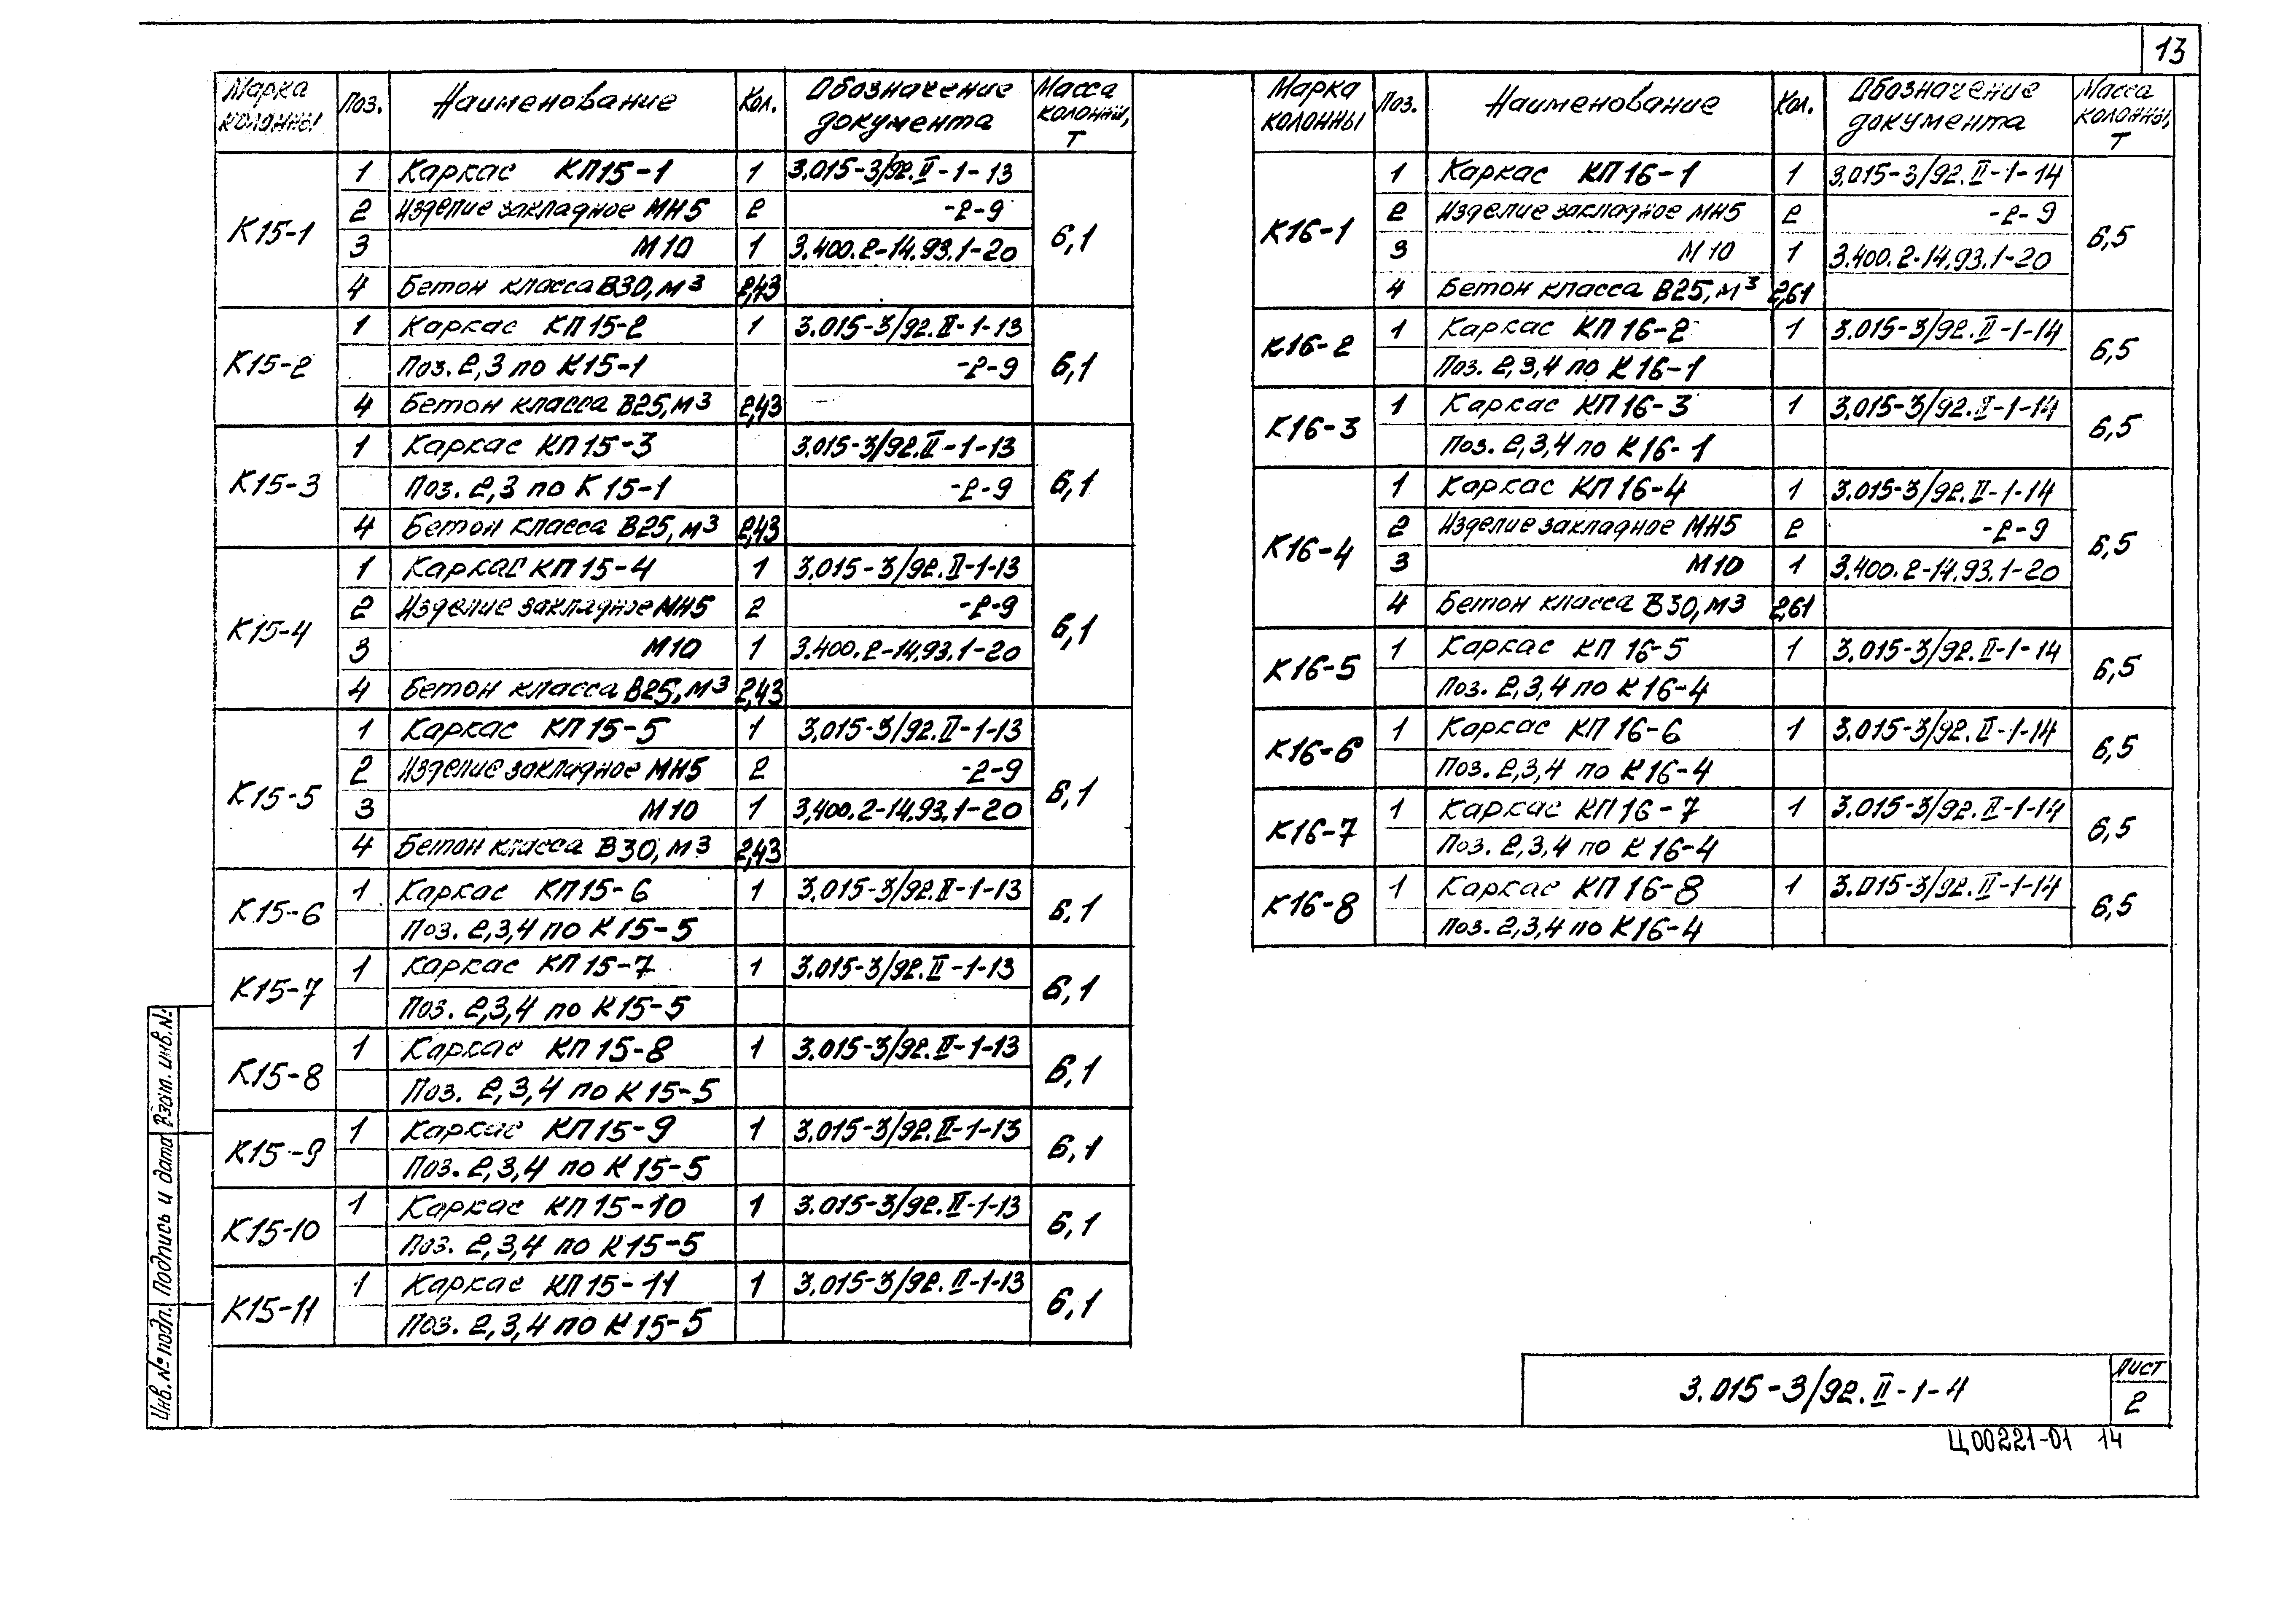 13
Марка колонны Поз. Наименование Кол. Обозначение документа Масса колонны, т
К15-1 1 Каркас КП15-1 1 3.015-3/92.II-1-13 6,1
2 Изделие закладное МН5 2 -2-9
3 М10 1 3.400.2-14.93.1-20
4 Бетон класса В30, м3 2,43
К15-2 1 Каркас КП15-2 1 3.015-3/92.II-1-13 6,1
Поз. 2,3 по К15-1 -2-9
4 Бетон класса В25, м3 2,43
К15-3 1 Каркас КП15-3 3.015-3/92.II-1-13 6,1
Поз. 2,3 по К15-1 -2-9
4 Бетон класса В25, м3 2,43
К15-4 1 Каркас КП15-4 1 3.015-3/92.II-1-13 6,1
2 Изделие закладное МН5 2 -2-9
3 М10 1 3.400.2-14.93.1-20
4 Бетон класса В25, м3 2,43
К15-5 1 Каркас КП15-5 1 3.015-3/92.II-1-13 6,1
2 Изделие закладное МН5 2 -2-9
3 М10 1 3.400.2-14.93.1-20
4 Бетон класса В30, м3 2,43
К15-6 1 Каркас КП15-6 1 3.015-3/92.II-1-13 6,1
Поз. 2,3,4 по К15-5
К15-7 1 Каркас КП15-7 1 3.015-3/92.II-1-13 6,1
Поз. 2,3,4 по К15-5
К15-8 1 Каркас КП15-8 1 3.015-3/92.II-1-13 6,1
Поз. 2,3,4 по К15-5
К15-9 1 Каркас КП15-9 1 3.015-3/92.II-1-13 6,1
Поз. 2,3,4 по К15-5
К15-10 1 Каркас КП15-10 1 3.015-3/92.II-1-13 6,1
Поз. 2,3,4 по К15-5
К15-11 1 Каркас КП15-11 1 3.015-3/92.II-1-13 6,1
Поз. 2,3,4 по К15-5
Марка колонны Поз. Наименование Кол. Обозначение документа Масса колонны, т
К16-1 1 Каркас КП16-1 1 3.015-3/92.II-1-14 6,5
2 Изделие закладное МН5 2 -2-9
3 М10 1 3.400.2-14.93.1-20
4 Бетон класса В25, м3 2,61
К16-2 1 Каркас КП16-2 1 3.015-3/92.II-1-14 6,5
Поз. 2,3,4 по К16-1
К16-3 1 Каркас КП16-3 1 3.015-3/92.II-1-14 6,5
Поз. 2,3,4 по К16-1
К16-4 1 Каркас КП16-4 1 3.015-3/92.II-1-14 6,5
2 Изделие закладное МН5 2 -2-9
3 М10 1 3.400.2-14.93.1-20
4 Бетон класса В30, м3 2,61
К16-5 1 Каркас КП16-5 1 3.015-3/92.II-1-14 6,5
Поз. 2,3,4 по К16-4
К16-6 1 Каркас КП16-6 1 3.015-3/92.II-1-14 6,5
Поз. 2,3,4 по К16-4
К16-7 1 Каркас КП16-7 1 3.015-3/92.II-1-14 6,5
Поз. 2,3,4 по К16-4
К16-8 1 Каркас КП16-8 1 3.015-3/92.II-1-14 6,5
Поз. 2,3,4 по К16-4
Инв. № подл. Подпись и дата Взам. инв. №
3.015-3/92.II-1-4
Лист
2
Ц00221-01 14